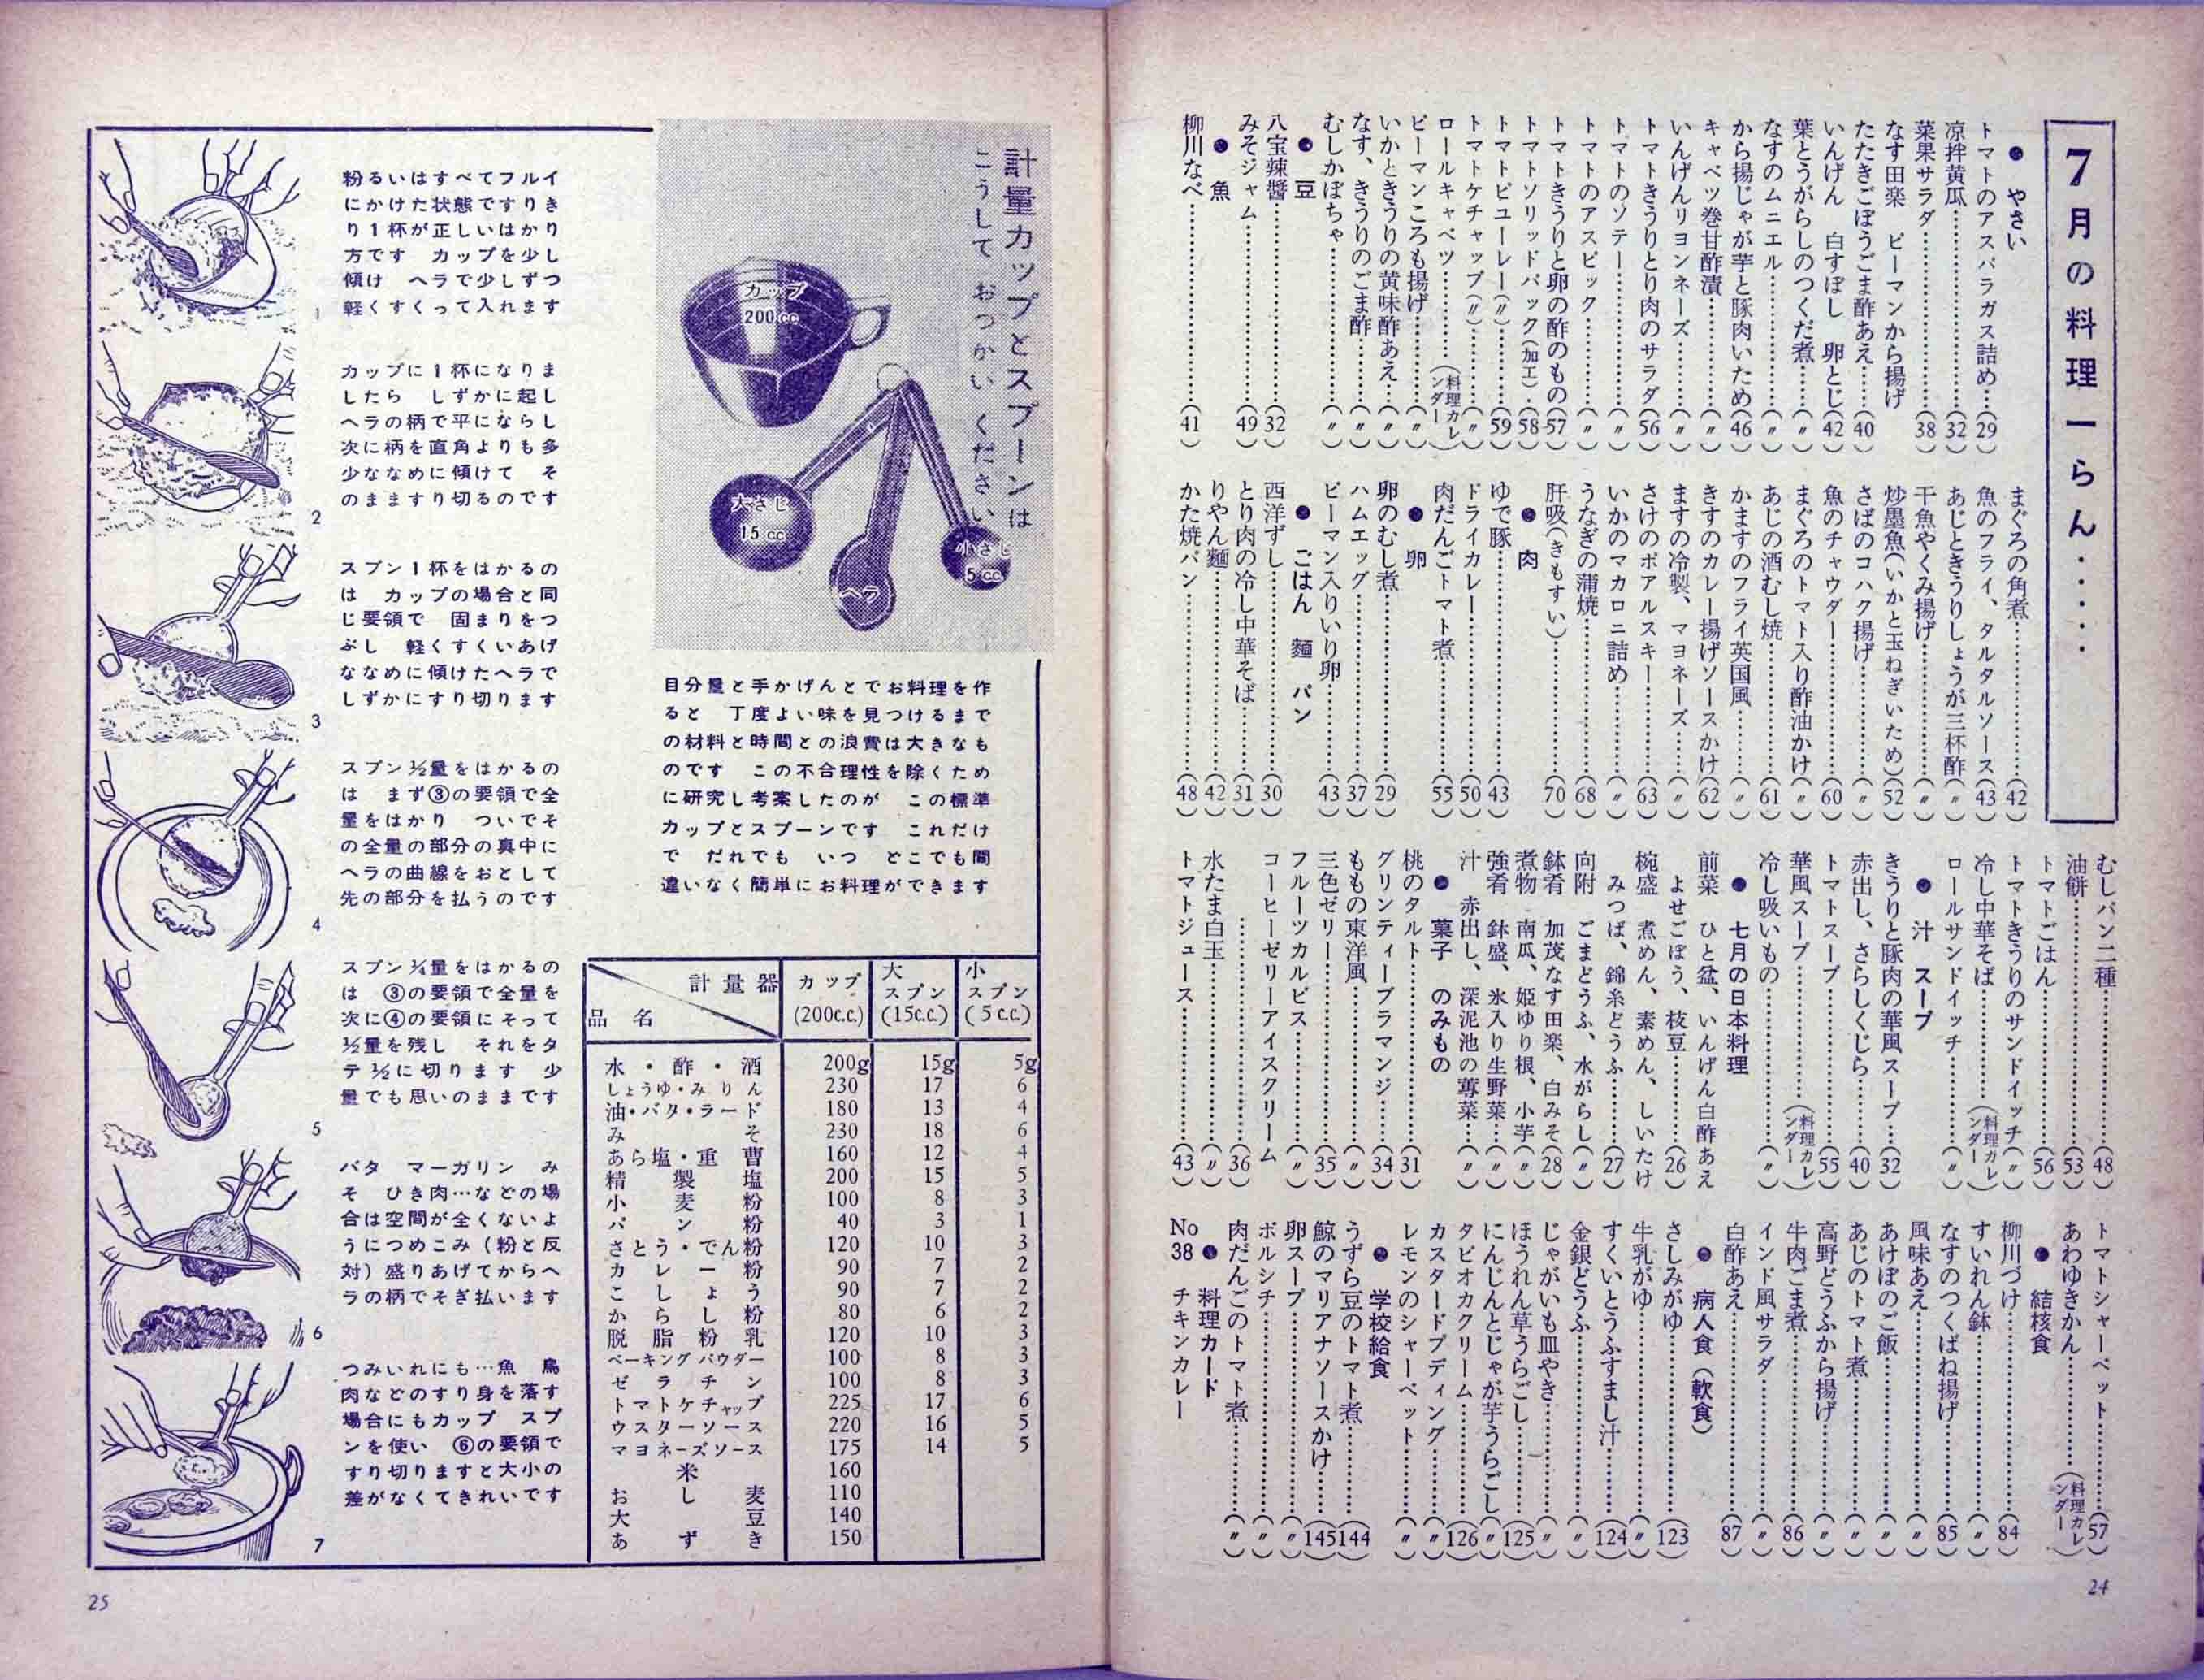 7月の料理一らん・・・・・
● やさい
トマトのアスパラガス詰め…(29)
凉拌黄瓜…(32)
菜果サラダ…(38)
なす田楽 ピーマンから揚げ
たたきごぼうごま酢あえ…(40)
いんげん 白すぼし 卵とじ(42)
葉とうがらしのつくだ煮…(〃)
なすのムニエル…(〃)
から揚じゃが芋と豚肉いため(46)
キャベツ巻甘酢漬…(〃)
いんげんリヨンネーズ…(〃)
トマトきうりとり肉のサラダ(56)
トマトのソテー…(〃)
トマトのアスピック…(〃)
トマトきうりと卵の酢のもの(57)
トマトソリッドパック(加工)…(58)
トマトピューレー(〃)…(59)
トマトケチャップ(〃)…(〃)
ロールキャベツ…(料理カレンダー)
ピーマンころも揚げ…(〃)
いかときうりの黄味酢あえ…(〃)
なす、きうりのごま酢…(〃)
むしかぼちゃ…(〃)
● 豆
八宝辣醬…(32)
みそジャム…(49)
● 魚
柳川なべ…(41)
まぐろの角煮…(42)
魚のフライ、タルタルソース(43)
あじときうりしょうが三杯酢(〃)
干魚やくみ揚げ…(〃)
炒墨魚(いかと玉ねぎいため)(52)
さばのコハク揚げ…(〃)
魚のチャウダー…(60)
まぐろのトマト入り酢油かけ(〃)
あじの酒むし焼…(61)
かますのフライ英国風…(〃)
きすのカレー揚げソースかけ(62)
ますの冷製、マヨネーズ…(〃)
さけのボアルスキー…(63)
いかのマカロニ詰め…(〃)
うなぎの蒲焼…(68)
肝吸(きもすい)…(70)
● 肉
ゆで豚…(43)
ドライカレー…(50)
肉だんごトマト煮…(55)
● 卵
卵のむし煮…(29)
ハムエッグ…(37)
ピーマン入りいり卵…(43)
● ごはん 麵 パン
西洋ずし…(30)
とり肉の冷し中華そば…(31)
りやん麵…(42)
かた焼パン…(48)
むしパン二種…(48)
油餅…(53)
トマトごはん…(56)
トマトきうりのサンドイッチ(〃)
冷し中華そば…(料理カレンダー)
ロールサンドイッチ…(〃)
● 汁 スープ
きうりと豚肉の華風スープ…(32)
赤出し、さらしくじら…(40)
トマトスープ…(55)
華風スープ…(料理カレンダー)
冷し吸いもの…(〃)
● 七月の日本料理
前菜 ひと盆、いんげん白酢あえ
よせごぼう、枝豆…(26)
椀盛 煮めん、素めん、しいたけ
みつば、錦糸どうふ…(27)
向附 ごまどうふ、水がらし(〃)
鉢肴 加茂なす田楽、白みそ(28)
煮物 南瓜、姫ゆり根、小芋(〃)
強肴 鉢盛、氷入り生野菜…(〃)
汁 赤出し、深泥池の蓴菜…(〃)
● 菓子 のみもの
桃のタルト…(31)
グリンティーブラマンジ…(34)
ももの東洋風…(〃)
三色ゼリー…(35)
フルーツカルピス…(〃)
コーヒーゼリーアイスクリーム
…(36)
水たま白玉…(〃)
トマトジュース…(43)
トマトシャーベット…(57)
あわゆきかん…(料理カレンダー)
● 結核食
柳川づけ…(84)
すいれん鉢…(〃)
なすのつくばね揚げ…(85)
風味あえ…(〃)
あけぼのご飯…(〃)
あじのトマト煮…(〃)
高野どうふから揚げ…(〃)
牛肉ごま煮…(86)
インド風サラダ…(〃)
白酢あえ…(87)
● 病人食(軟食)
さしみがゆ…(123)
牛乳がゆ…(〃)
すくいとうふすまし汁…(124)
金銀どうふ…(〃)
じゃがいも皿やき…(〃)
ほうれん草うらごし…(125)
にんじんとじゃが芋うらごし(〃)
タピオカクリーム…(126)
カスタードプディング…(〃)
レモンのシャーベット…(〃)
● 学校給食
うずら豆のトマト煮…(144)
鯨のマリアナソースかけ…(145)
卵スープ…(〃)
ボルシチ…(〃)
肉だんごのトマト煮…(〃)
● 料理カード
No 38 チキンカレー
24
計量カップとスプーンは
こうして おつかい ください
カップ
200cc
大さじ
15cc
ヘラ
小さじ
5cc
目分量と手かげんとでお料理を作
ると 丁度よい味を見つけるまで
の材料と時間との浪費は大きなも
のです この不合理性を除くため
に研究し考案したのが この標準
カップとスプーンです これだけ
で だれでも いつ どこでも間
違いなく簡単にお料理ができます
粉るいはすべてフルイ
にかけた状態ですりき
り1杯が正しいはかり
方です カップを少し
傾け ヘラで少しずつ
軽くすくって入れます
1
カップに1杯になりま
したら しずかに起し
ヘラの柄で平にならし
次に柄を直角よりも多
少ななめに傾けて そ
のまますり切るのです
2
スプン1杯をはかるの
は カップの場合と同
じ要領で 固まりをつ
ぶし 軽くすくいあげ
ななめに傾けたヘラで
しずかにすり切ります
3
スプン½量をはかるの
は まず③の要領で全
量をはかり ついでそ
の全量の部分の真中に
ヘラの曲線をおとして
先の部分を払うのです
4
スプン¼量をはかるの
は ③の要領で全量を
次に④の要領にそって
½量を残し それをタ
テ½に切ります 少
量でも思いのままです
5
バタ マーガリン み
そ ひき肉…などの場
合は空間が全くないよ
うにつめこみ(粉と反
対)盛りあげてからヘ
ラの柄でそぎ払います
6
つみいれにも…魚 鳥
肉などのすり身を落す
場合にもカップ スプ
ンを使い ⑥の要領で
すり切りますと大小の
差がなくてきれいです
7
計量器 品名 カップ(200c.c.) 大スプン(15c.c.) 小スプン(5c.c.)
水・酢・酒 200g 15g 5g
しょうゆ・みりん 230 17 6
油・バタ・ラード 180 13 4
みそ 230 18 6
あら塩・重曹 160 12 4
精製塩 200 15 5
小麦粉 100 8 3
パン粉 40 3 1
さとう・でん粉 120 10 3
カレー粉 90 7 2
こしょう 90 7 2
からし粉 80 6 2
脱脂粉乳 120 10 3
ベーキングパウダー 100 8 3
ゼラチン 100 8 3
トマトケチャップ 225 17 6
ウスターソース 220 16 5
マヨネーズソース 175 14 5
米 160
おし麦 110
大豆 140
あずき 150
25